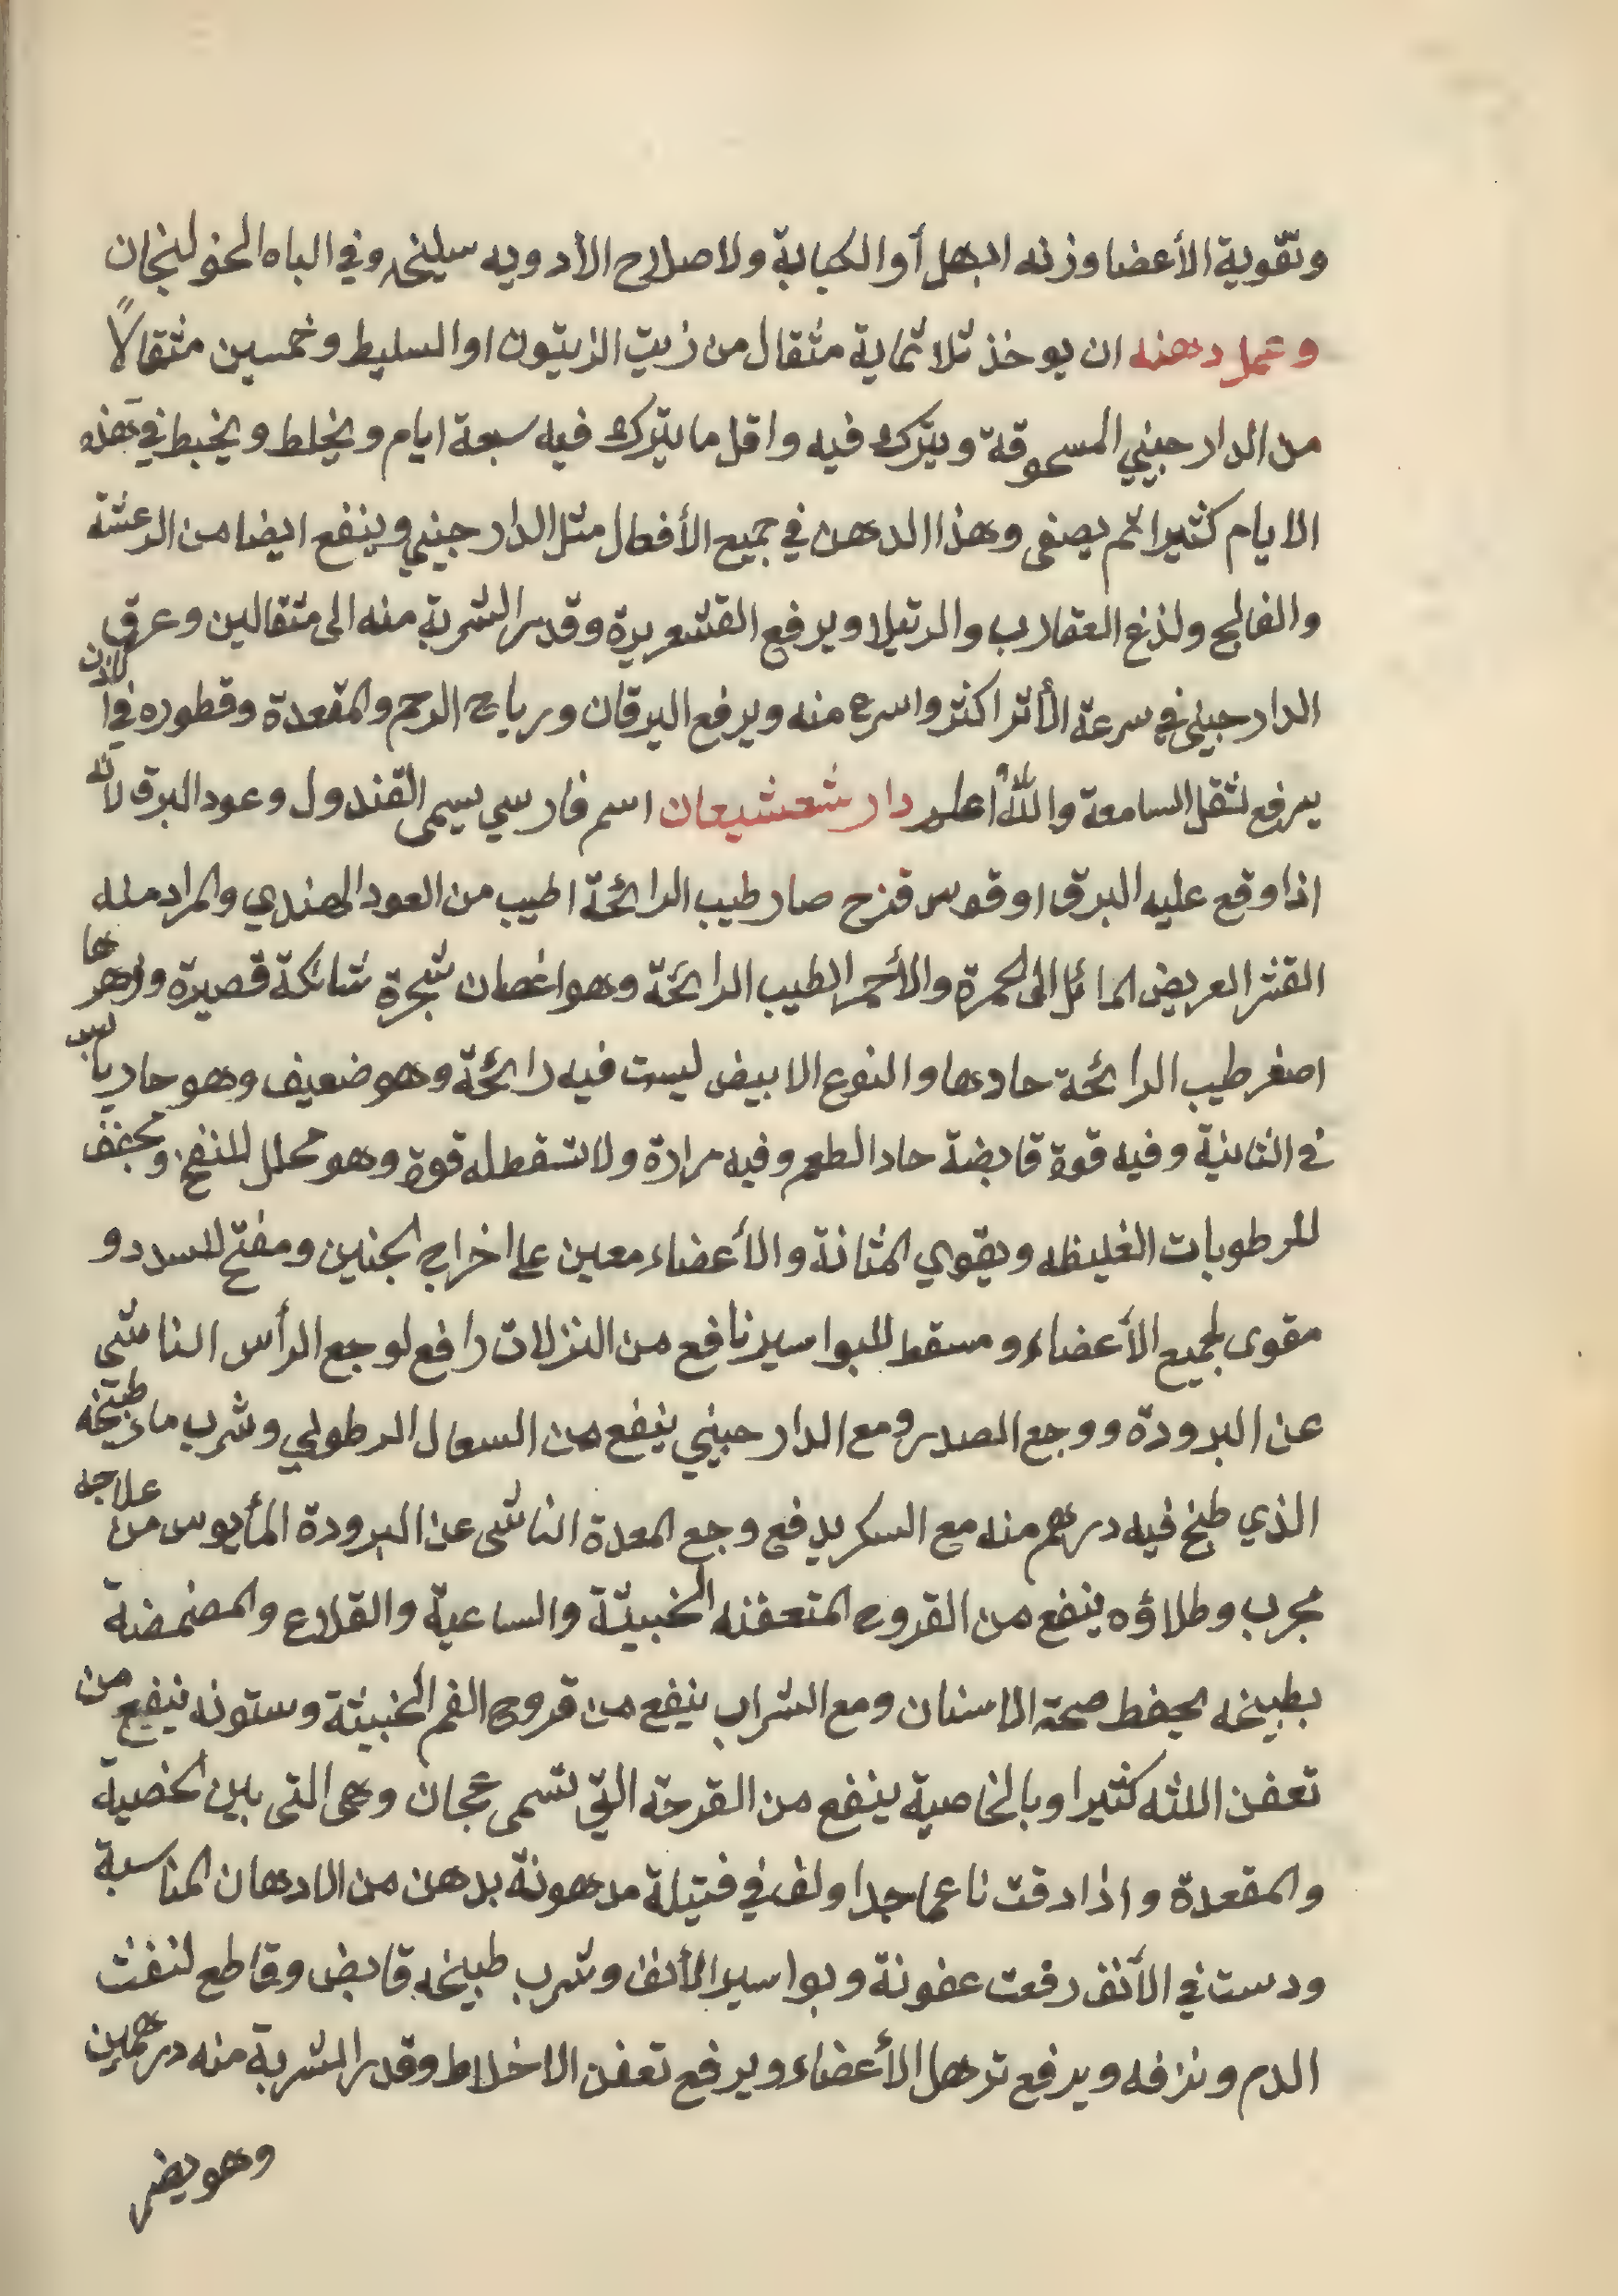 وتقوية الأعضا وزنه ابهل أو الكبابة ولاصلاح الأدويه سليخه وفي الباه الخولنجان
وعمل دهنه ان يوخذ ثلاثماية مثقال من زيت الزيتون او السليط وخمسين مثقالاً
من الدارجيني المسحوقة ويترك فيه واقل ما يترك فيه سبعة ايام ويخلط ويخبط في هذه
الايام كثيرا ثم يصفى وهذا الدهن في جميع الأفعال مثل الدارجيني وينفع ايضا من الرعشة
والفالج ولذغ العقارب والرتيلا ويرفع القشعريرة وقدر الشربة منه الى مثقالين وعرق
الدارجيني في سرعة الأثر اكثر واسرع منه ويرفع اليرقان ورياح الرحم والمقعدة وقطوره في الاذن
يرفع ثقل السامعة والله أعلم دارشعشيعان اسم فارسي يسمى القندول وعود البرق لانه
اذا وقع عليه البرق او قوس قزح صار طيب الرائحة اطيب من العود الهندي والمراد منه
القشر العريض المائل الى الحمرة والأحمر الطيب الرائحة وهو اغصان شجرة شائكة قصيرة وزهرها
اصفر طيب الرائحة حادها والنوع الابيض ليست فيه رائحة وهو ضعيف وهو حار يابس
في الثانية وفيه قوة قابضة حاد الطعم وفيه مرارة ولا تسقط له قوة وهو محلل للنفخ ومجفف
للرطوبات الغليظه ويقوي المثانة والأعضاء معين على اخراج الجنين ومفتح للسدد و
مقوى لجميع الأعضاء ومسقط للبواسير نافع من النزلات رافع لوجع الرأس الناشي
عن البرودة ووجع الصدر ومع الدارجيني ينفع من السعال الرطوبي وشرب ماء طبيخه
الذي طبخ فيه درهم منه مع السكر يدفع وجع المعدة الناشى عن البرودة المأيوس من علاجه
مجرب وطلاؤه ينفع من القروح المتعفنه الخبيثة والساعية والقلاع والمضمضة
بطبيخه يحفط صحة الاسنان ومع الشراب ينفع من قروح الفم الخبيثة وستونه ينفع من
تعفن اللثه كثيرا وبالخاصية ينفع من القرحة التي تسمى عجان وهى التى بين الخصية
والمقعدة واذا دقت ناعما جدا ولف في فتيلة مدهونة بدهن من الادهان المناسبة
ودست في الأنف رفعت عفونة وبواسير الأنف وشرب طبيخه قابض وقاطع لنفث
الدم ونزفه ويرفع ترهل الأعضاء ويرفع تعفن الاخلاط وقدر الشربة منه درهمين
وهو يضر